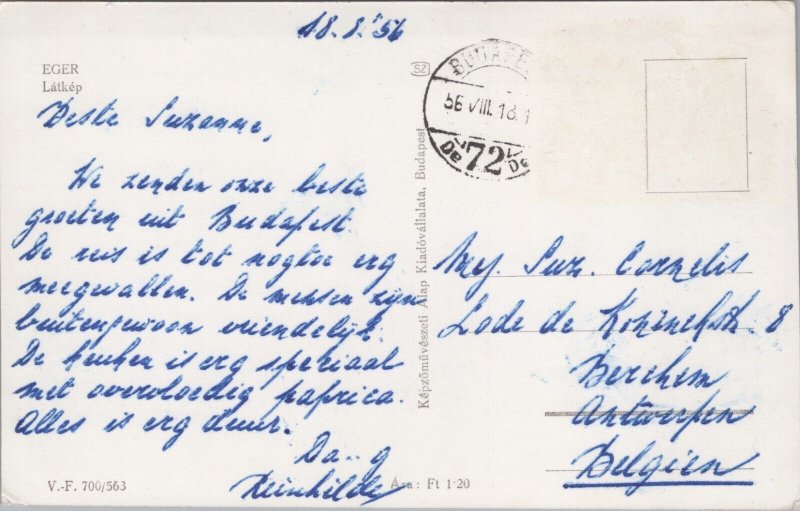 18.8.'56
EGER
Látkép
Beste Suzanne,
We zenden onze beste
groeten uit Budapest.
De reis is tot nogtoe erg
meegevallen. De mensen zijn
buitengewoon vriendelijk.
De keuken is erg speciaal
met overvloedig paprica.
Alles is erg duur.
Da..g
Reinhilde
V.-F. 700/563
Ára : Ft 1·20
Képzőművészeti Alap Kiadóvállalata, Budapest
SZ
BUDAPE
56 VIII. 18. 1
De 72 De
Mej. Suz. Cornelis
Lode de 8
Berchem
Antwerpen
Belgien